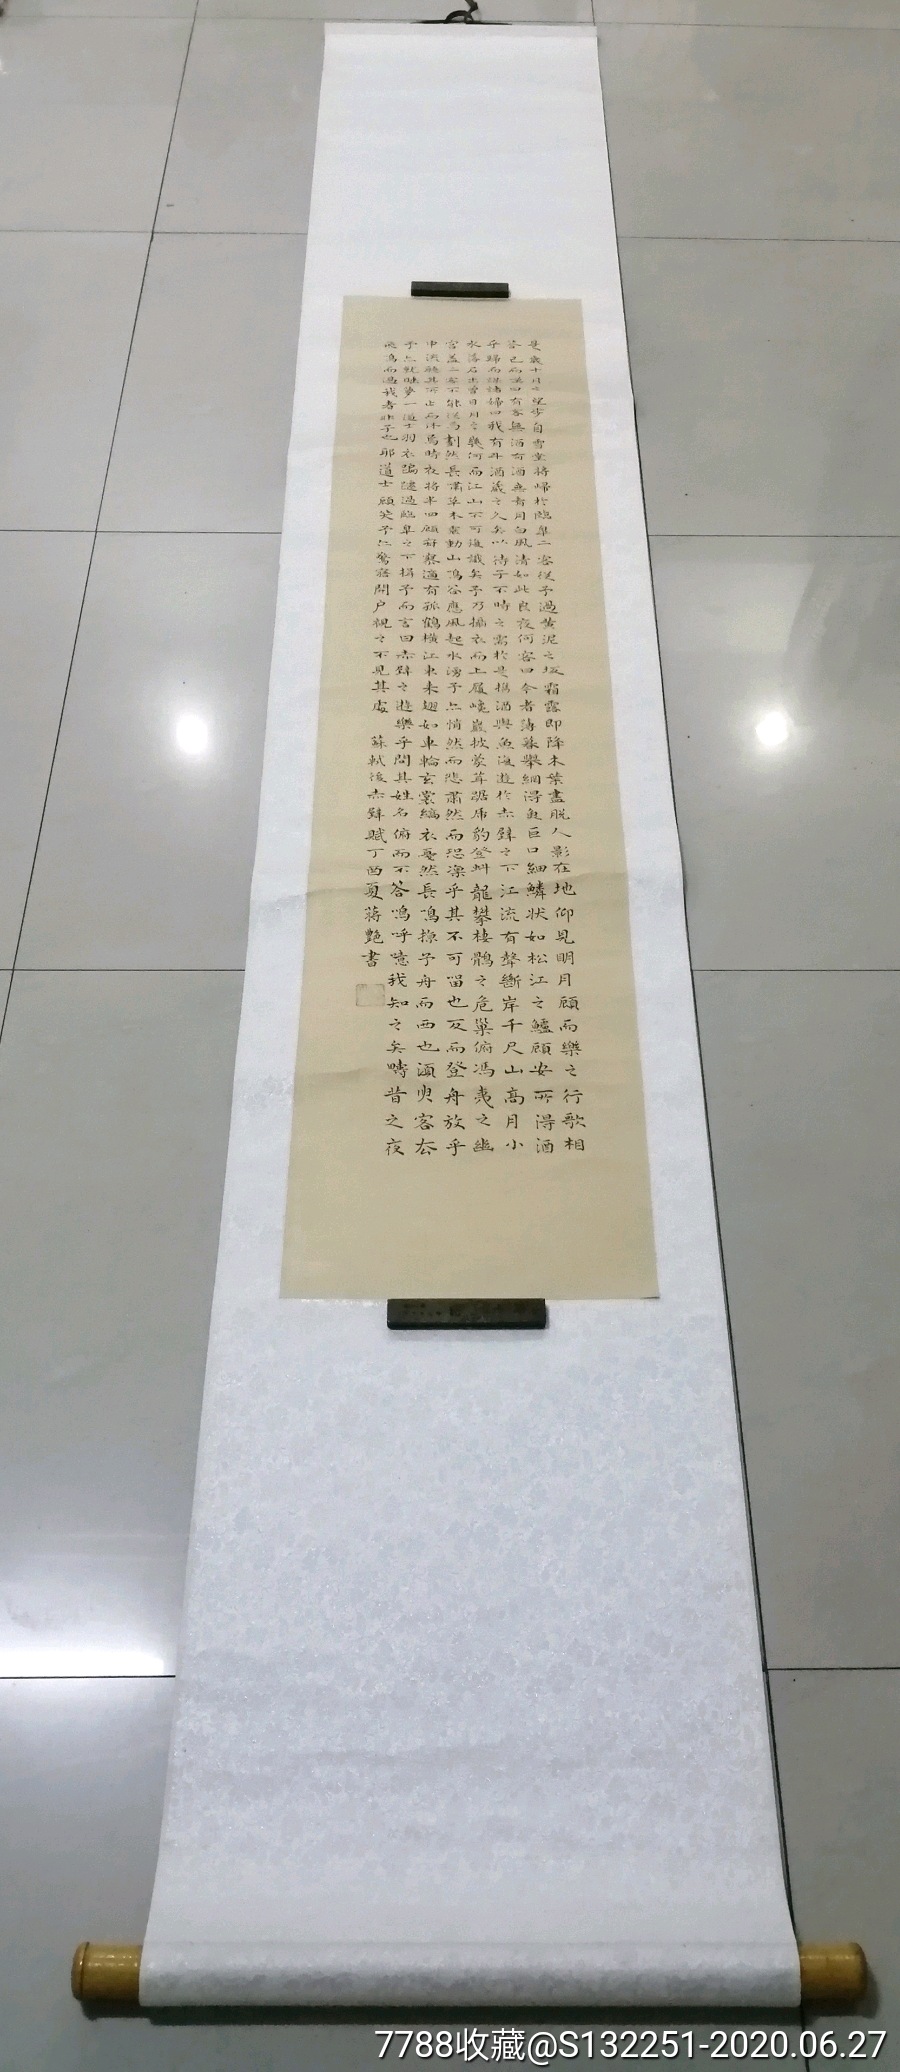 是歲十月之望步自雪堂將歸於臨皋二客從予過黃泥之坂霜露即降木葉盡脫人影在地仰見明月顧而樂之行歌相
答已而嘆曰有客無酒有酒無肴月白風清如此良夜何客曰今者薄暮舉網得魚巨口細鱗狀如松江之鱸顧安所得酒
乎歸而謀諸婦曰我有斗酒藏之久矣以待子不時之需於是攜酒與魚復遊於赤壁之下江流有聲斷岸千尺山高月小
水落石出曾日月之幾何而江山不可復識矣予乃攝衣而上履巉巖披蒙茸踞虎豹登虯龍攀棲鶻之危巢俯馮夷之幽
宮蓋二客不能從焉劃然長嘯草木震動山鳴谷應風起水湧予亦悄然而悲肅然而恐凜乎其不可留也反而登舟放乎
中流聽其所止而休焉時夜將半四顧寂寥適有孤鶴橫江東來翅如車輪玄裳縞衣戛然長鳴掠予舟而西也須臾客去
予亦就睡夢一道士羽衣蹁躚過臨皋之下揖予而言曰赤壁之遊樂乎問其姓名俯而不答嗚呼噫我知之矣疇昔之夜
飛鳴而過我者非子也耶道士顧笑予亦驚寤開戶視之不見其處 蘇軾後赤壁賦丁酉夏蔣艷書
7788收藏@S132251-2020.06.27